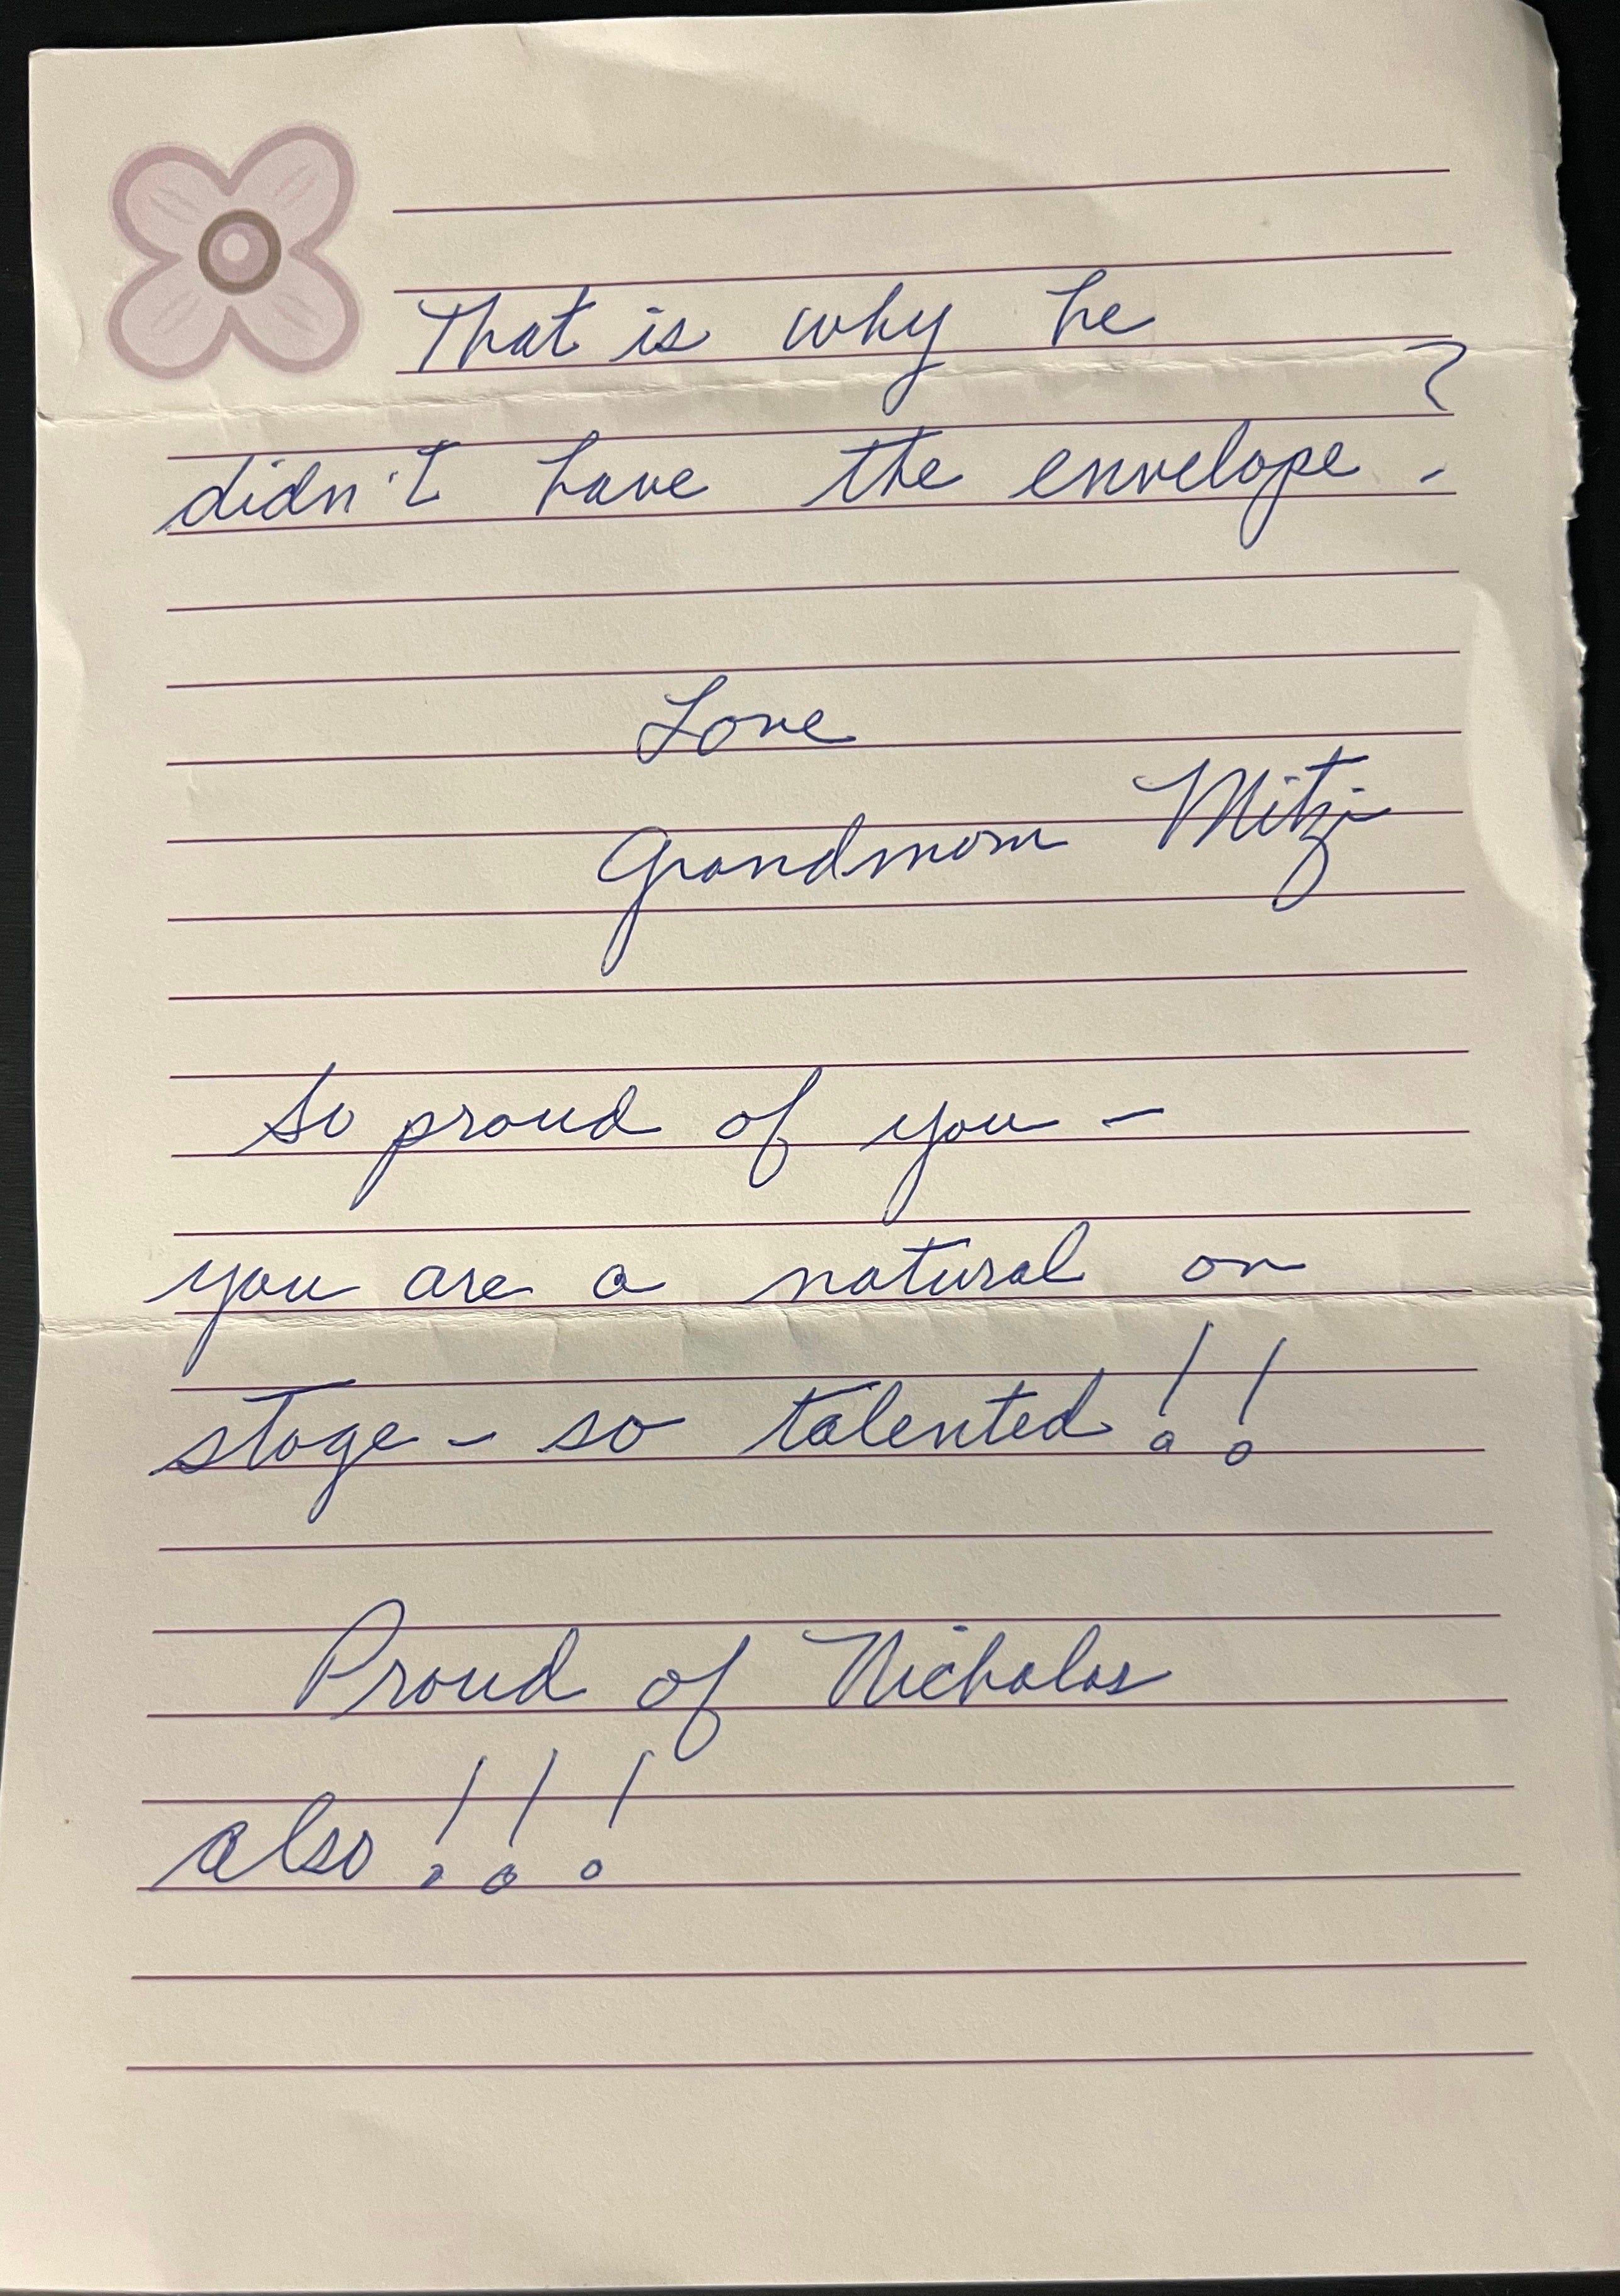 That is why he
didn't have the envelope?
Love
Grandmom Mitzi
So proud of you -
you are a natural on
stage - so talented!!
Proud of Nicholas
also!!!